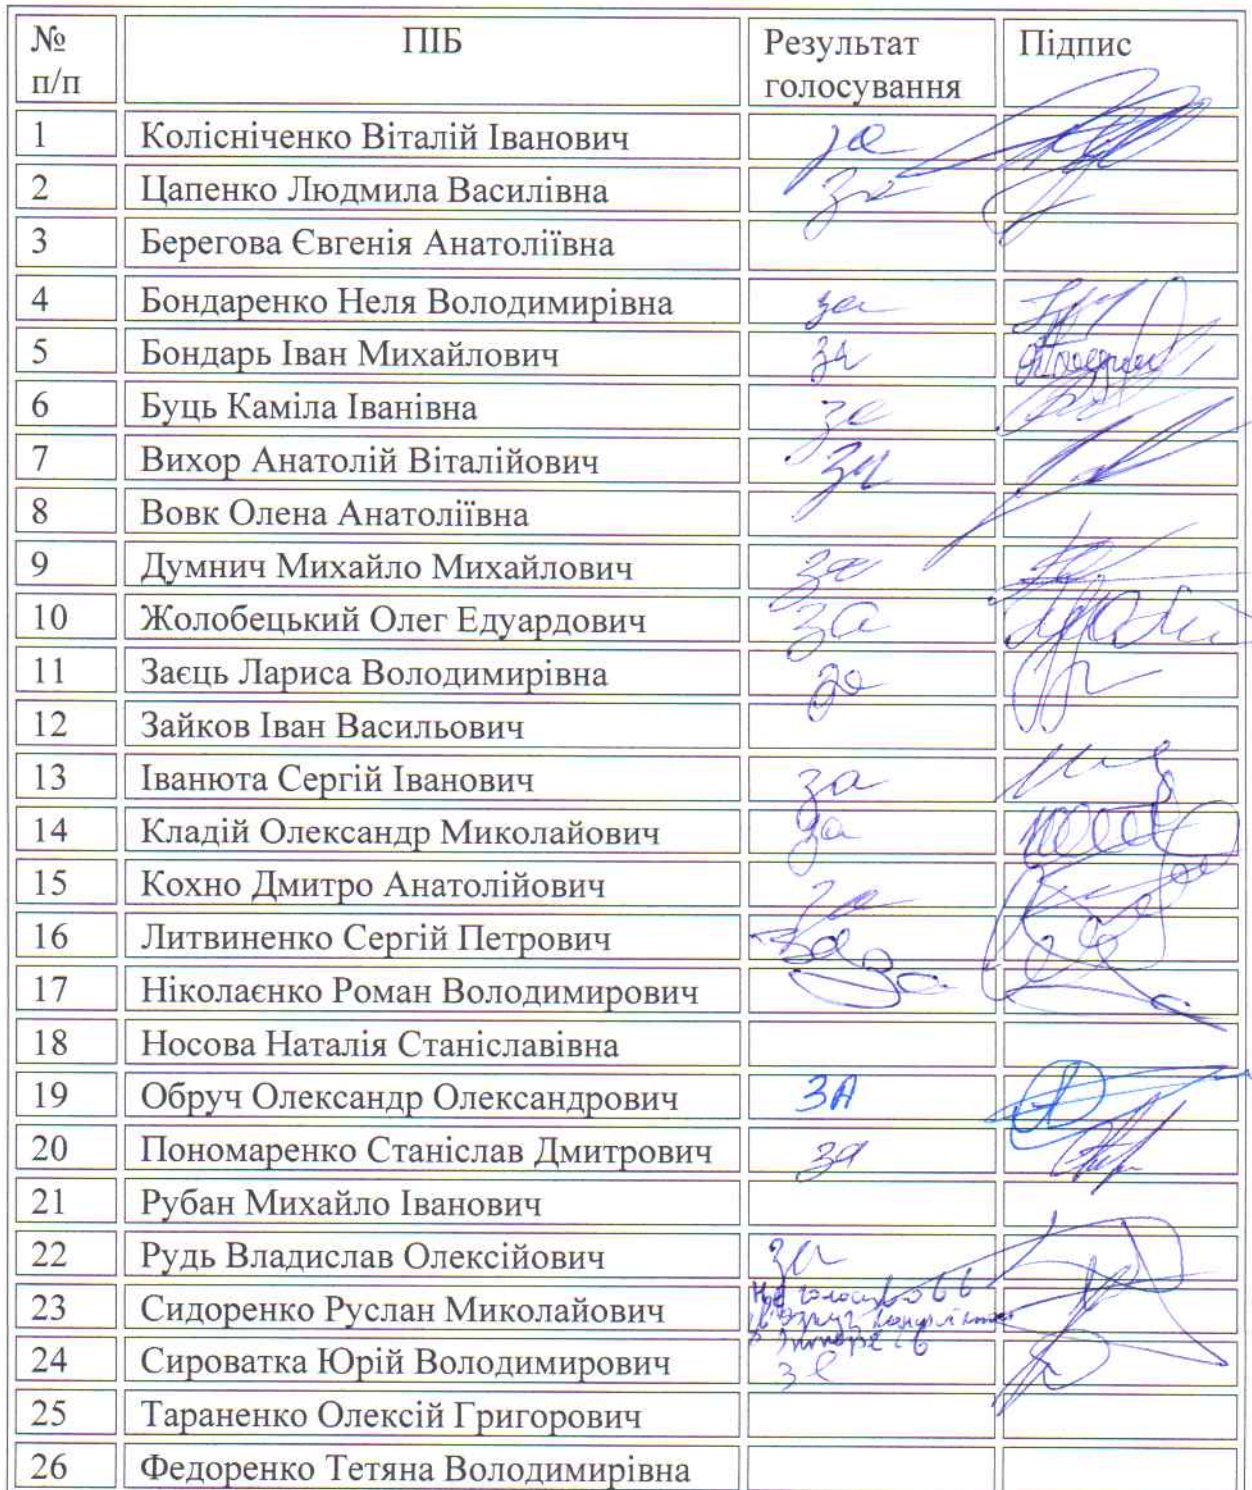 № п/п ПІБ Результат голосування Підпис
1 Колісніченко Віталій Іванович за
2 Цапенко Людмила Василівна за
3 Берегова Євгенія Анатоліївна
4 Бондаренко Неля Володимирівна за
5 Бондарь Іван Михайлович за
6 Буць Каміла Іванівна за
7 Вихор Анатолій Віталійович за
8 Вовк Олена Анатоліївна
9 Думнич Михайло Михайлович за
10 Жолобецький Олег Едуардович за
11 Заєць Лариса Володимирівна за
12 Зайков Іван Васильович
13 Іванюта Сергій Іванович за
14 Кладій Олександр Миколайович за
15 Кохно Дмитро Анатолійович за
16 Литвиненко Сергій Петрович за
17 Ніколаєнко Роман Володимирович за
18 Носова Наталія Станіславівна
19 Обруч Олександр Олександрович ЗА
20 Пономаренко Станіслав Дмитрович за
21 Рубан Михайло Іванович
22 Рудь Владислав Олексійович за
23 Сидоренко Руслан Миколайович Не голосував
24 Сироватка Юрій Володимирович за
25 Тараненко Олексій Григорович
26 Федоренко Тетяна Володимирівна